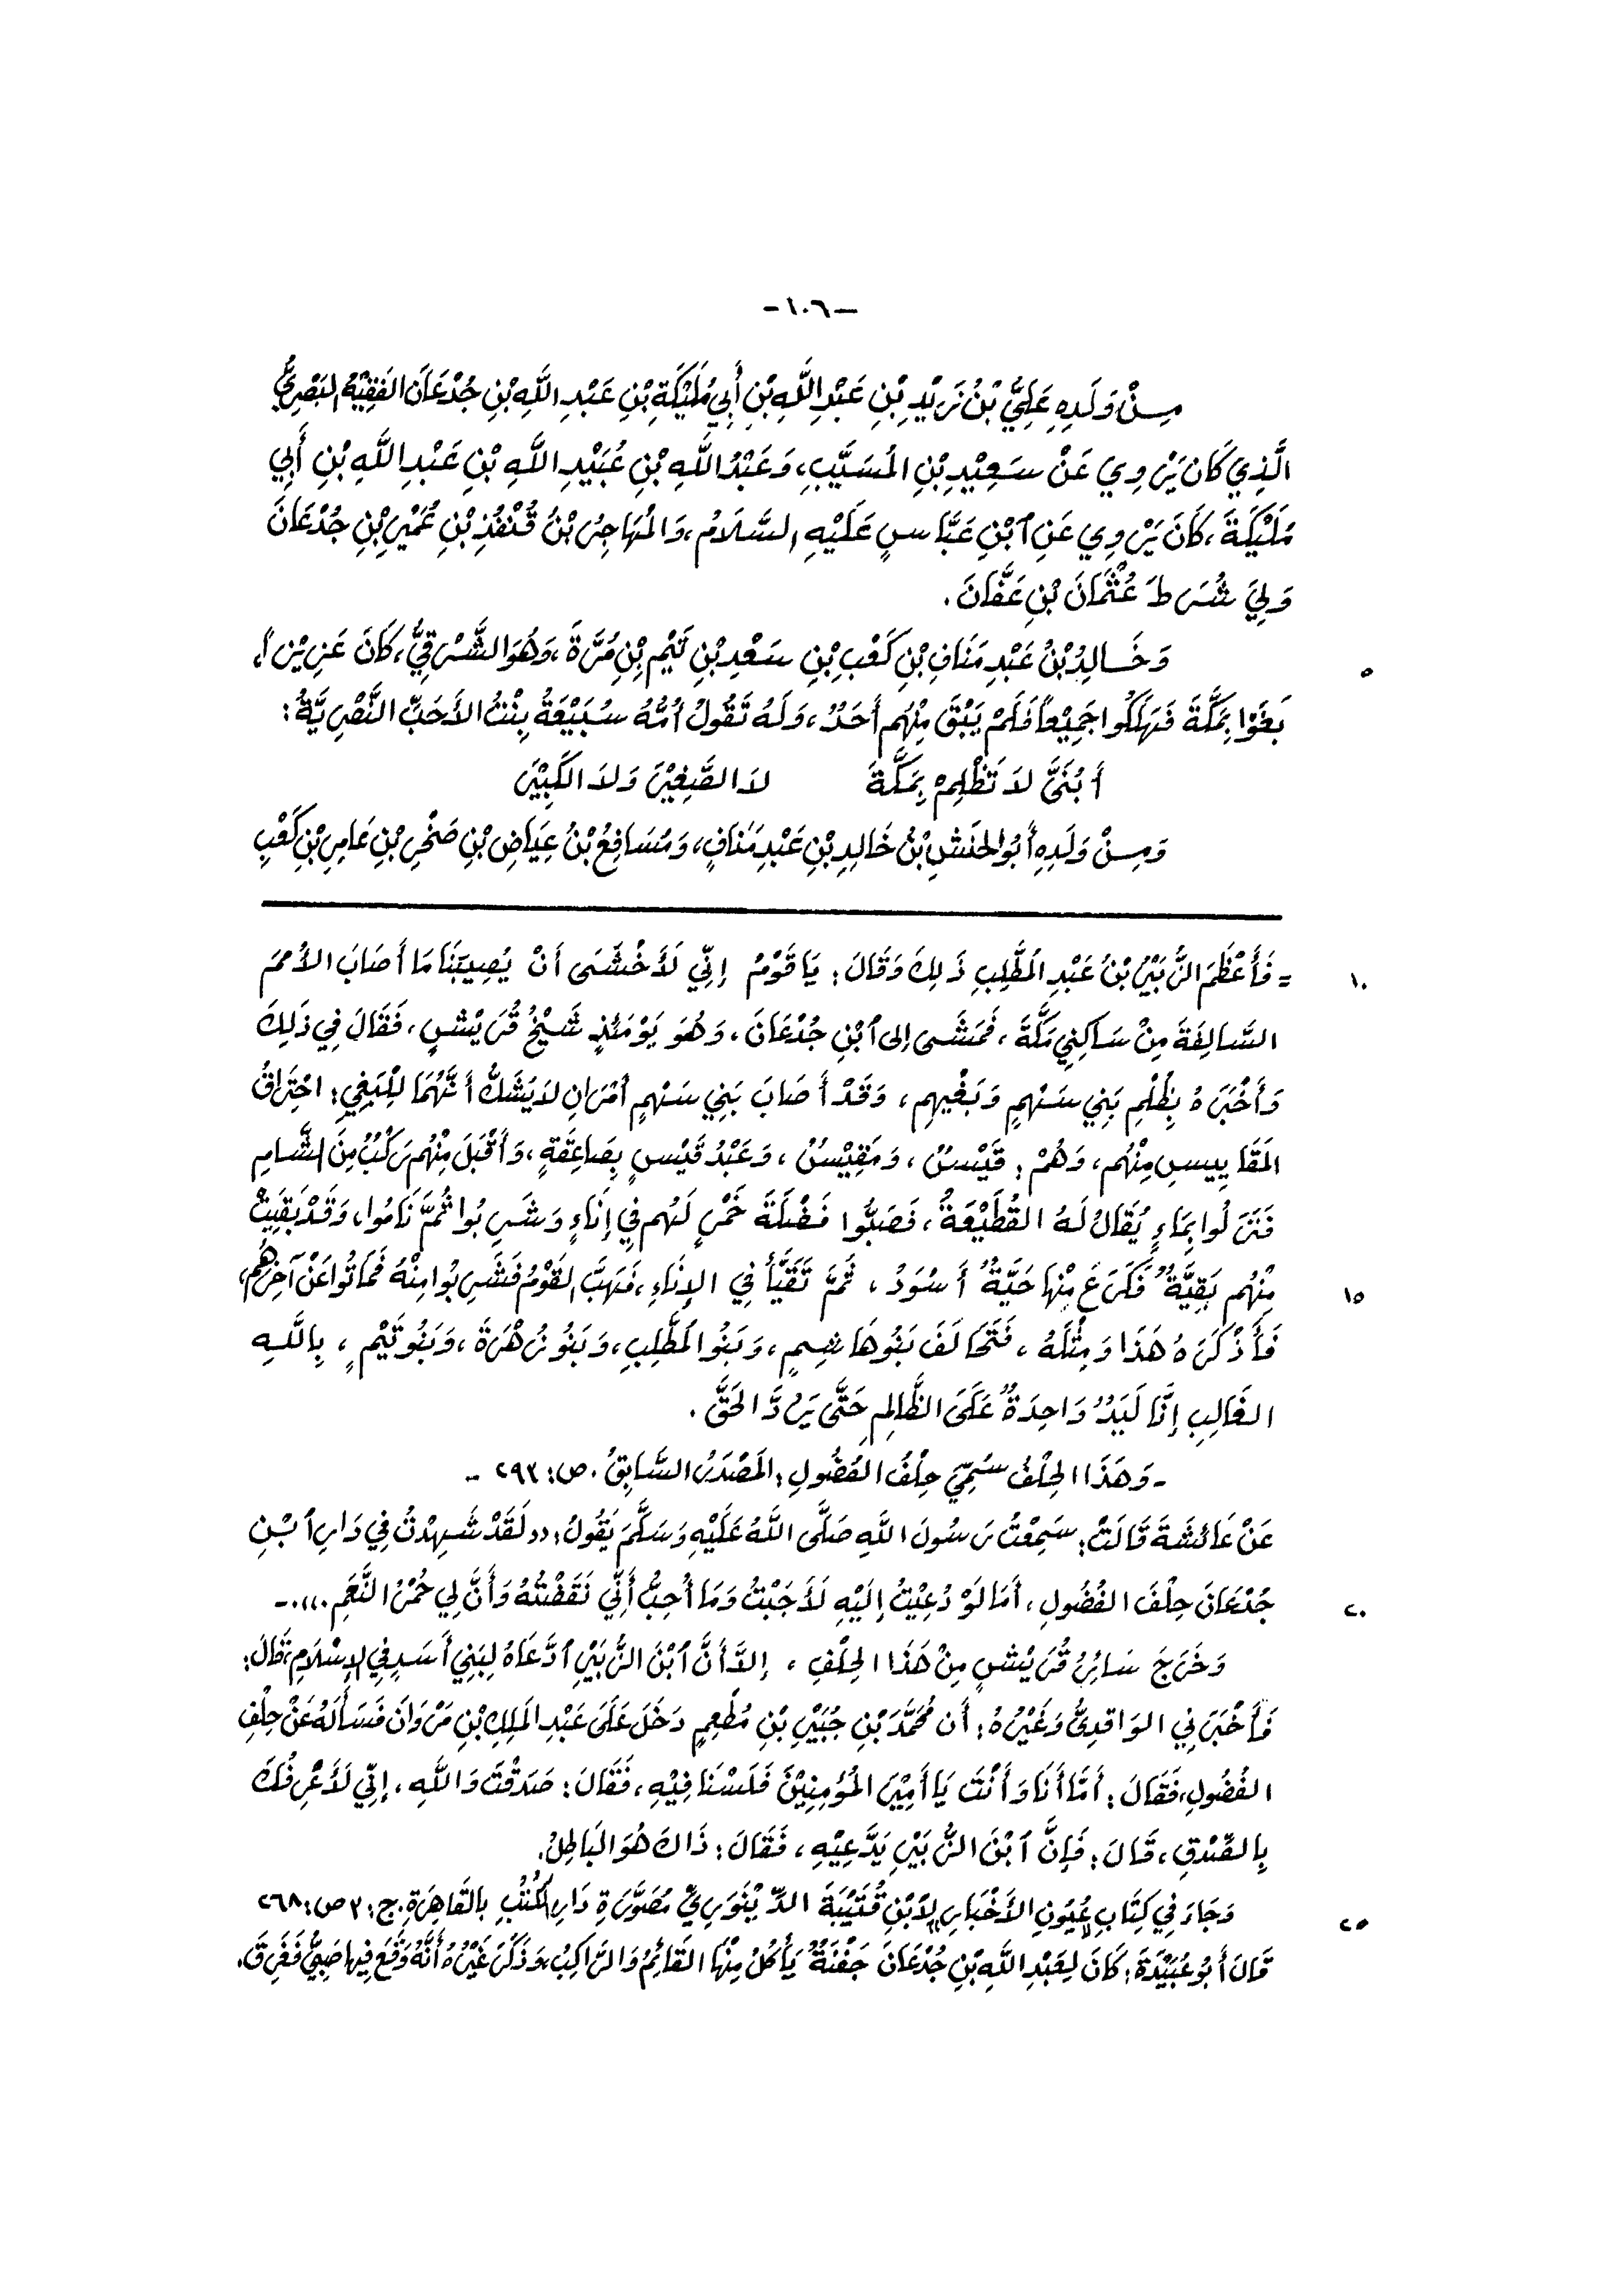 -١٠٦-
مِنْ وَلَدِهِ عَلِيُّ بْنُ زَيْدِ بْنِ عَبْدِ اللَّهِ بْنِ أَبِي مُلَيْكَةَ بْنِ عَبْدِ اللَّهِ بْنِ جُدْعَانَ الفَقِيْهُ البَصْرِيُّ
الَّذِي كَانَ يَرْوِي عَنْ سَعِيْدِ بْنِ المُسَيَّبِ، وَعَبْدُ اللَّهِ بْنِ عُبَيْدِ اللَّهِ بْنِ عَبْدِ اللَّهِ بْنِ أَبِي
مُلَيْكَةَ، كَانَ يَرْوِي عَنِ ٱبْنِ عَبَّاسٍ عَلَيْهِ السَّلَامُ، وَالمُهَاجِرُ بْنُ قُنْفُذِ بْنِ عُمَيْرِ بْنِ جُدْعَانَ
وَلِيَ شُرَطَ عُثْمَانَ بْنِ عَفَّانَ.
٥ وَخَالِدُ بْنُ عَبْدِ مَنَافِ بْنِ كَعْبِ بْنِ سَعْدِ بْنِ تَيْمِ بْنِ مُرَّةَ، وَهُوَ الشَّرْقِيُّ، كَانَ عَزِيْزاً،
بَغَوْا بِمَكَّةَ فَهَلَكُوا جَمِيْعاً فَلَمْ يَبْقَ مِنْهُم أَحَدٌ، وَلَهُ تَقُولُ أُمُّهُ سُبَيْعَةُ بِنْتُ الأَحَبِّ النَّصْرِيَّةُ:
أَبُنَيَّ لاَ تَظْلِمْ بِمَكَّةَ لاَ الصَّغِيْرَ وَلاَ الكَبِيْرَ
وَمِنْ وَلَدِهِ أَبُو الحَنَشِ بْنُ خَالِدِ بْنِ عَبْدِ مَنَافٍ، وَمُسَافِعُ بْنُ عِيَاضِ بْنِ صَخْرِ بْنِ عَامِرِ بْنِ كَعْبِ
١٠ = فَأَعْظَمَ الزُّبَيْرُ بْنُ عَبْدِ المُطَّلِبِ ذَلِكَ وَقَالَ: يَا قَوْمُ إِنِّي لَأَخْشَى أَنْ يُصِيبَنَا مَا أَصَابَ الأُمَمَ
السَّالِفَةَ مِنْ سَاكِنِي مَكَّةَ، فَمَشَى إِلى ٱبْنِ جُدْعَانَ، وَهُوَ يَوْمَئِذٍ شَيْخُ قُرَيْشٍ، فَقَالَ فِي ذَلِكَ
وَأَخْبَرَهُ بِظُلْمِ بَنِي سَهْمٍ وَبَغْيِهِم، وَقَدْ أَصَابَ بَنِي سَهْمٍ أَمْرَانِ لاَيَشُكُّ أَنَّهُمَا لِلْبَغِي: احْتِرَاقُ
المَقَايِيسِ مِنْهُم، وَهُمْ: قَيْسُ، وَمَقِيْسُ، وَعَبْدُ قَيْسٍ بِصَاعِقَةٍ، وَأَقْبَلَ مِنْهُم رَكْبٌ مِنَ الشَّامِ
فَنَزَلُوا بِمَاءٍ يُقَالُ لَهُ القُطَيْعَةُ، فَصَبُّوا فَضْلَةَ خَمْرٍ لَهُم فِي إِنَاءٍ وَشَرِبُوا ثُمَّ نَامُوا، وَقَدْ بَقِيَتْ
١٥ مِنْهُم بَقِيَّةٌ فَكَرَعَ مِنْهَا حَيَّةٌ أَسْوَدُ، ثُمَّ تَقَيَّأَ فِي الإِنَاءِ، فَهَبَّ القَوْمُ فَشَرِبُوا مِنْهُ فَمَاتُوا عَنْ آخِرِهُم،
فَأَذْكَرَهُ هَذَا وَمِثْلَهُ، فَتَحَالَفَ بَنُو هَاشِمٍ، وَبَنُو المُطَّلِبِ، وَبَنُو زُهْرَةَ، وَبَنُو تَيْمٍ، بِاللَّهِ
الغَالِبِ إِنَّا لَيَدٌ وَاحِدَةٌ عَلَى الظَّالِمِ حَتَّى يَرُدَّ الحَقَّ.
- وَهَذَا الحِلْفُ سُمِّيَ حِلْفُ الفُضُولِ: المَصْدَرُ السَّابِقُ. ص: ٢٩٣ -
عَنْ عَائشَةَ قَالَتْ: سَمِعْتُ رَسُولَ اللَّهِ صَلَّى اللَّهُ عَلَيْهِ وَسَلَّمَ يَقُولُ: «لَقَدْ شَهِدْتُ فِي دَارِ ٱبْنِ
٢٠ جُدْعَانَ حِلْفَ الفُضُولِ، أَمَا لَوْ دُعِيْتُ إِلَيْهِ لَأَجَبْتُ وَمَا أُحِبُّ أَنِّي نَقَضْتُهُ وَأَنَّ لِي حُمْرُ النَّعَمِ...» -
وَخَرَجَ سَائِرُ قُرَيْشٍ مِنْ هَذَا الحِلْفِ، إِلاَّ أَنَّ ٱبْنَ الزُّبَيْرِ ٱدَّعَاهُ لِبَنِي أَسَدٍ فِي الإِسْلاَمِ، قَالَ:
فَأَخْبَرَنِي الوَاقِدِيُّ وَغَيْرُهُ: أَن مُحَمَّدَ بْنِ جُبَيْرِ بْنِ مُطْعِمٍ دَخَلَ عَلَى عَبْدِ المَلِكِ بْنِ مَرْوَانَ فَسَأَلَهُ عَنْ حِلْفِ
الفُضُولِ، فَقَالَ: أَمَّا أَنَا وَأَنْتَ يَا أَمِيْرَ المُؤْمِنِيْنَ فَلَسْنَا فِيْهِ، فَقَالَ: صَدَقْتَ وَاللَّهِ، إِنِّي لَأَعْرِفُكَ
بِالصِّدْقِ، قَالَ: فَإِنَّ ٱبْنَ الزُّبَيْرِ يَدَّعِيْهِ، فَقَالَ: ذَاكَ هُوَ البَاطِلُ.
٢٥ وَجَاءَ فِي كِتَابِ عُيُونِ الأَخْبَارِ لِٱبْنِ قُتَيْبَةَ الدِّيْنَوَرِيِّ مُصَوَّرَةِ دَارِ الكُتُبِ بِالقَاهِرَةِ. ج: ٣ ص: ٢٦٨
قَالَ أَبُو عُبَيْدَةَ: كَانَ لِعَبْدِ اللَّهِ بْنِ جُدْعَانَ جَفْنَةٌ يَأْكُلُ مِنْهَا القَائِمُ وَالرَّاكِبُ، وَذَكَرَ غَيْرُهُ أَنَّهُ وَقَعَ فِيهَا صَبِيٌّ فَغَرِقَ.